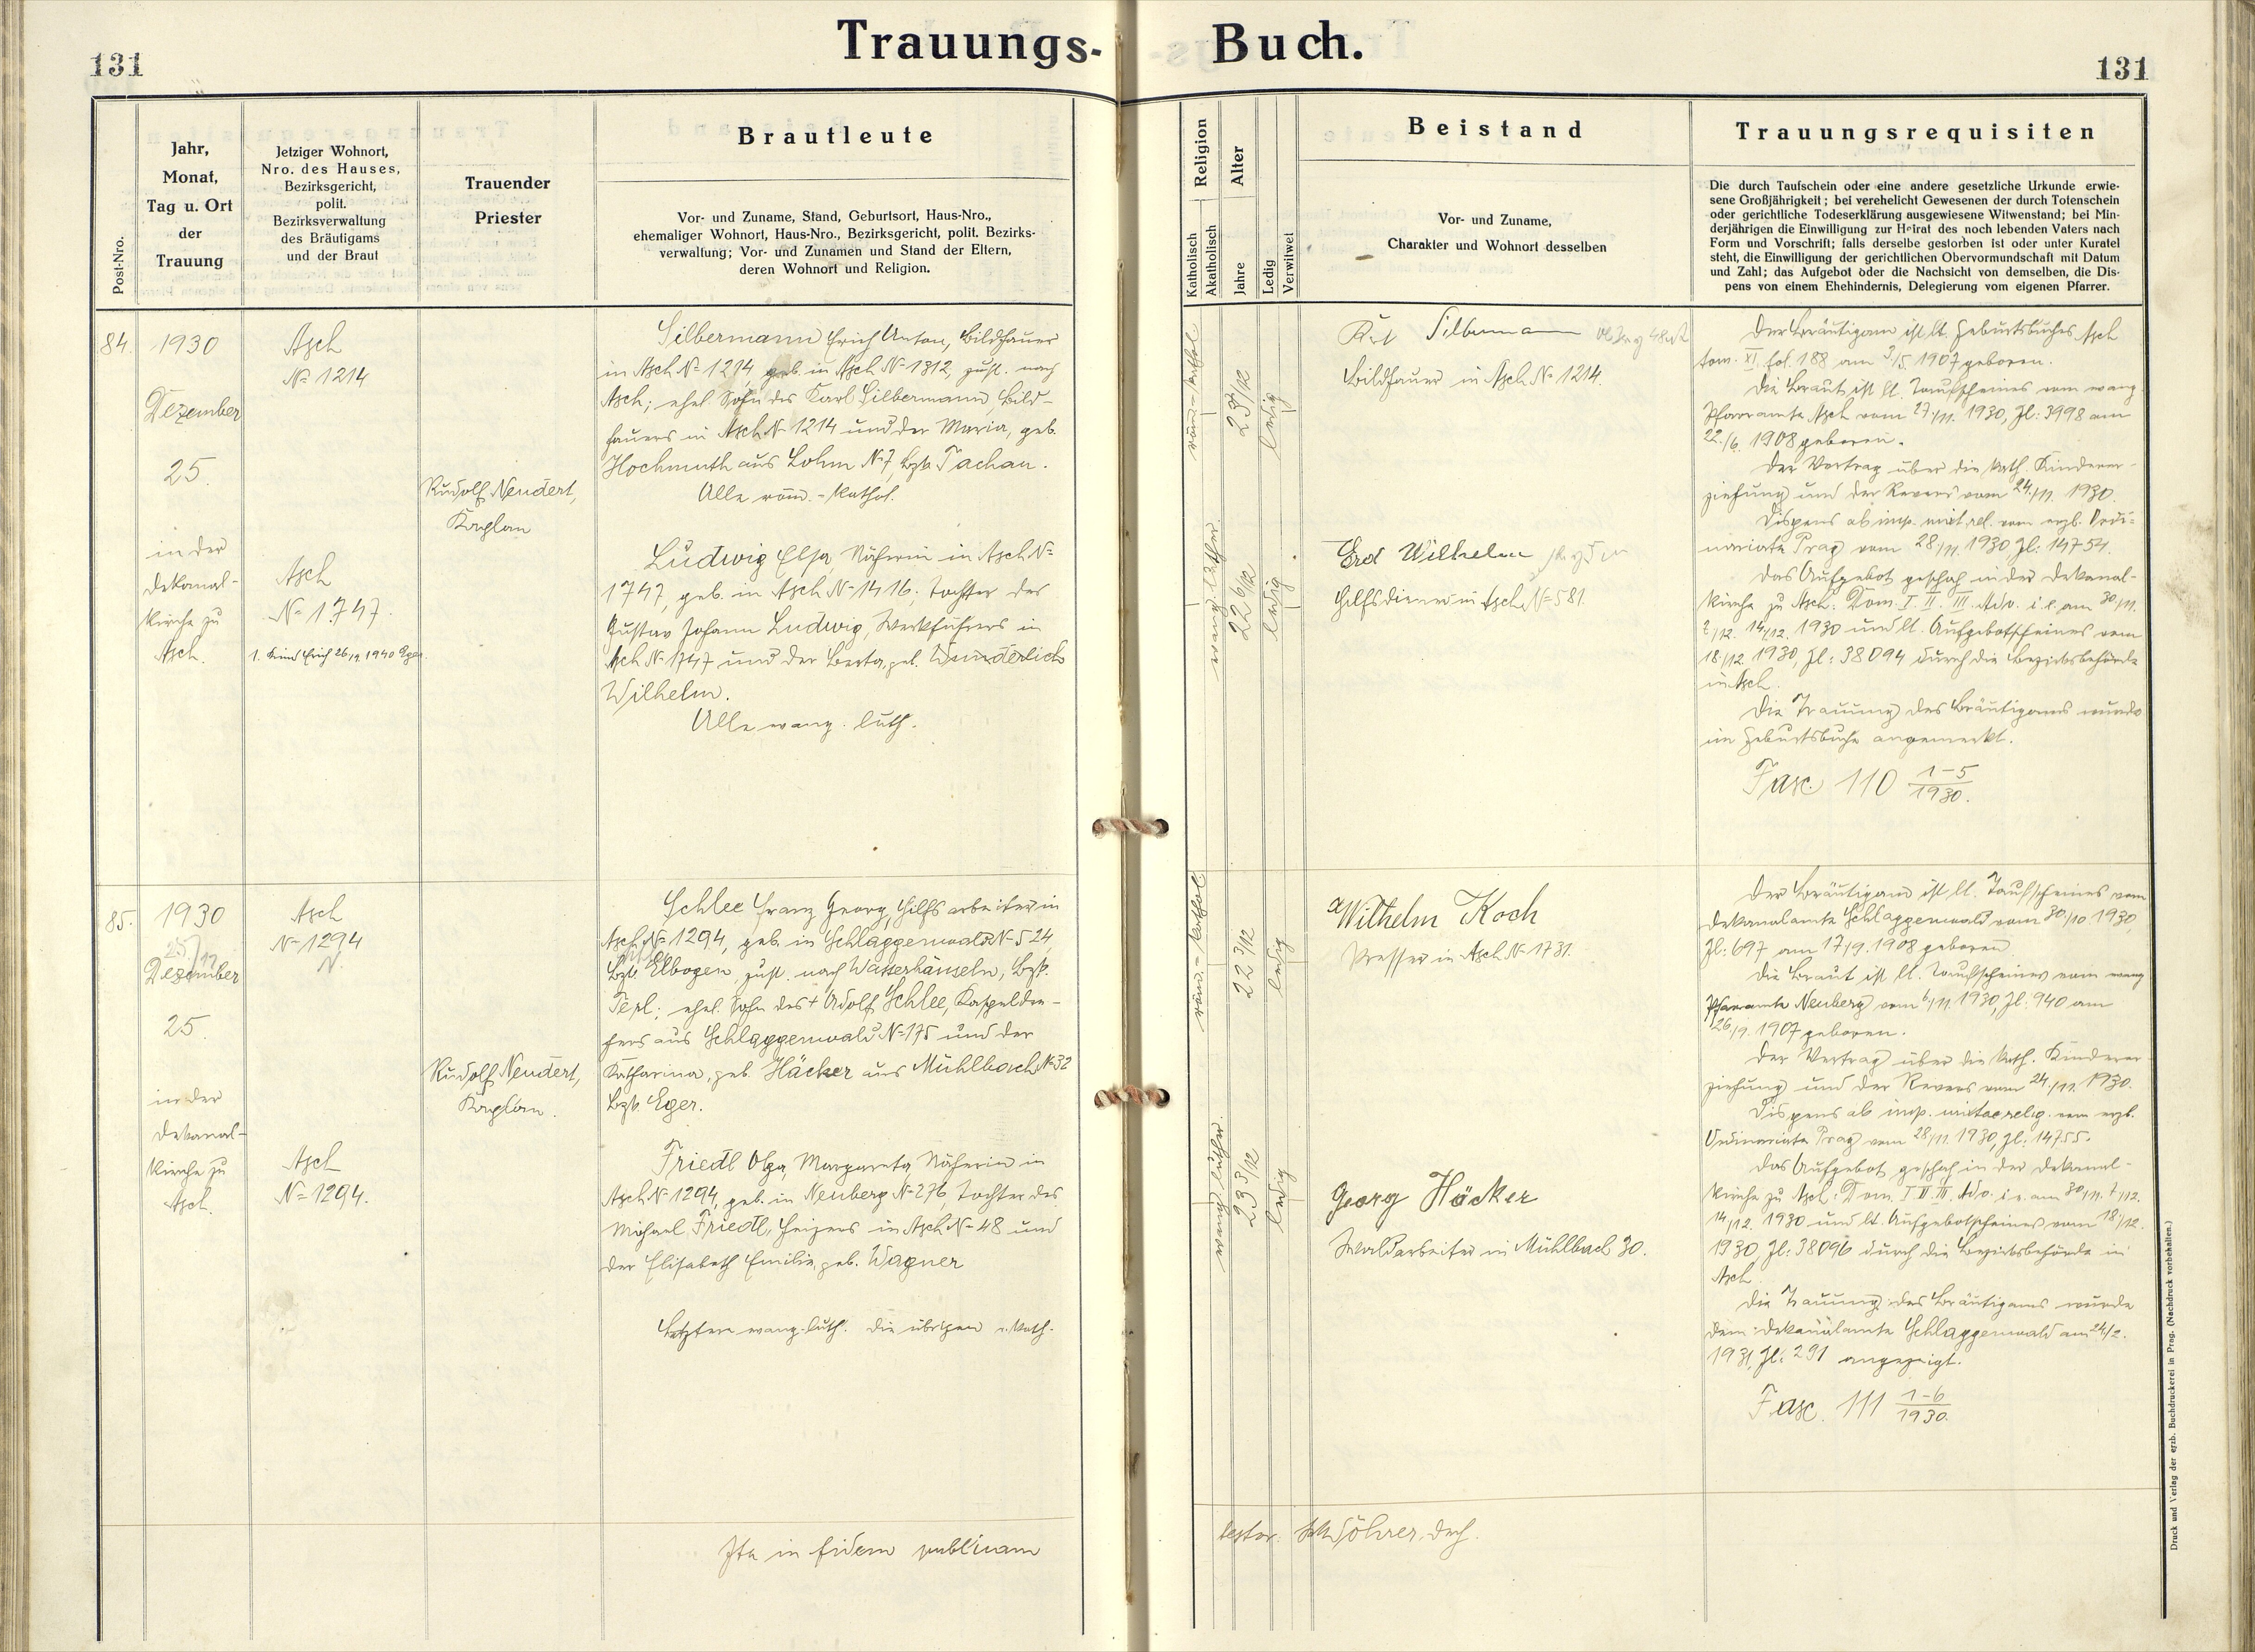 Trauungs- Buch.
131
131
Post-Nro.
Jahr,
Monat,
Tag u. Ort
der
Trauung
Jetziger Wohnort,
Nro. des Hauses,
Bezirksgericht,
polit.
Bezirksverwaltung
des Bräutigams
und der Braut
Trauender
Priester
Brautleute
Vor- und Zuname, Stand, Geburtsort, Haus-Nro.,
ehemaliger Wohnort, Haus-Nro., Bezirksgericht, polit. Bezirks-
verwaltung; Vor- und Zunamen und Stand der Eltern,
deren Wohnort und Religion.
Religion
Katholisch
Akatholisch
Alter
Jahre
Ledig
Verwitwet
Beistand
Vor- und Zuname,
Charakter und Wohnort desselben
Trauungsrequisiten
Die durch Taufschein oder eine andere gesetzliche Urkunde erwie-
sene Großjährigkeit; bei verehelicht Gewesenen der durch Totenschein
oder gerichtliche Todeserklärung ausgewiesene Witwenstand; bei Min-
derjährigen die Einwilligung zur Heirat des noch lebenden Vaters nach
Form und Vorschrift; falls derselbe gestorben ist oder unter Kuratel
steht, die Einwilligung der gerichtlichen Obervormundschaft mit Datum
und Zahl; das Aufgebot oder die Nachsicht von demselben, die Dis-
pens von einem Ehehindernis, Delegierung vom eigenen Pfarrer.
84.
1930
Dezember
25.
in der
Dekanal-
kirche zu
Asch.
Asch
N= 1214
Asch
N= 1747.
1. Kind Erich 26/9. 1940 Eger.
Rudolf Neudert,
Kaplan
Silbermann Erich Anton, Bildhauer
in Asch N= 1214, geb. in Asch N= 1312, zust. nach
Asch; ehel. Sohn des Karl Silbermann, Bild-
hauers in Asch N= 1214 und der Maria, geb.
Hochmuth aus Lohm N= 7, Bzk. Tachau.
Alle röm.-kathol.
Ludwig Elsa, Näherin in Asch N=
1747, geb. in Asch N= 1416. Tochter des
Gustav Johann Ludwig, Werkführers in
Asch N= 1747 und der Berta, geb. Wunderlich
Wilhelm.
Alle evang. luth.
röm.-kathol
evang. luther.
23 7/12
22 6/12
ledig
ledig
Silbermann
Bildhauer in Asch N= 1214.
Wilhelm
Hilfsdiener in Asch N= 581.
Der Bräutigam ist lt. Geburtsbuches Asch
tom. XI. fol. 188 am 3./5. 1907 geboren.
Die Braut ist lt. Taufscheines vom evang.
Pfarramte Asch vom 27./11. 1930, Zl: 3998 am
22./6. 1908 geboren.
Der Vertrag über die kath. Kinderer-
ziehung und der Revers vom 24./11. 1930.
Dispens ab imp. mixt. rel. vom erzb. Ordi-
nariate Prag vom 28/11. 1930 Zl: 14754.
Das Aufgebot geschah in der Dekanal-
kirche zu Asch: Dom. I. II. III. Adv. i. e. am 30/11.
7/12. 14/12. 1930 und lt. Aufgebotscheines vom
18./12. 1930, Zl: 38094 durch die Bezirksbehörde
in Asch.
Die Trauung des Bräutigams wurde
im Geburtsbuche angemerkt.
Fasc. 110 1-5/1930.
85.
1930
25/12
Dezember
25.
in der
Dekanal-
kirche zu
Asch.
Asch
N= 1294
N.
Asch
N= 1294.
Rudolf Neudert,
Kaplan.
Schlee Franz Georg, Hilfsarbeiter in
Asch N= 1294, geb. in Schlaggenwald N= 524,
Bzk. Elbogen, zust. nach Wasserhäuseln, Bzk.
Tepl; ehel. Sohn des + Adolf Schlee, Kapseldre-
hers aus Schlaggenwald N= 175 und der
Katharina, geb. Häcker aus Mühlbach N= 32
Bzk. Eger.
Friedl Olga, Margareta Näherin in
Asch N= 1294, geb. in Neuberg N= 276, Tochter des
Michael Friedl, Heizers in Asch N= 48 und
der Elisabeth Emilie, geb. Wagner
Letztere evang. luth. die übrigen r. kath.
röm.-kathol
evang. luther.
22 3/12
23 3/12
ledig
ledig
Wilhelm Koch
Presser in Asch N= 1731.
Georg Häcker
Waldarbeiter in Mühlbach 30.
Der Bräutigam ist lt. Taufscheines vom
Dekanalamte Schlaggenwald vom 30/10 1930,
Zl: 697 am 17/9. 1908 geboren
Die Braut ist lt. Taufscheines vom evang
Pfarramte Neuberg vom 6/11. 1930, Zl: 940 am
26/9. 1907 geboren.
Der Vertrag über die kath. Kinderer-
ziehung und der Revers vom 24./11. 1930.
Dispens ab imp. mixtae relig. vom erzb.
Ordinariate Prag vom 28/11. 1930, Zl: 14755.
Das Aufgebot geschah in der Dekanal-
kirche zu Asch: Dom. I II. III. Adv. i. e. am 30/11. 7/12.
14/12. 1930 und lt. Aufgebotscheines vom 18./12.
1930, Zl: 38096 durch die Bezirksbehörde in
Asch.
Die Trauung des Bräutigams wurde
dem Dekanalamte Schlaggenwald am 24/2.
1931, Zl: 291 angezeigt.
Fasc. 111 1-6/1930.
Ita in fidem publicam
testor.
Druck und Verlag der erzb. Buchdruckerei in Prag. (Nachdruck vorbehalten.)